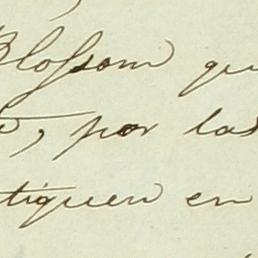 Blossom qu
, por las
tiquen en